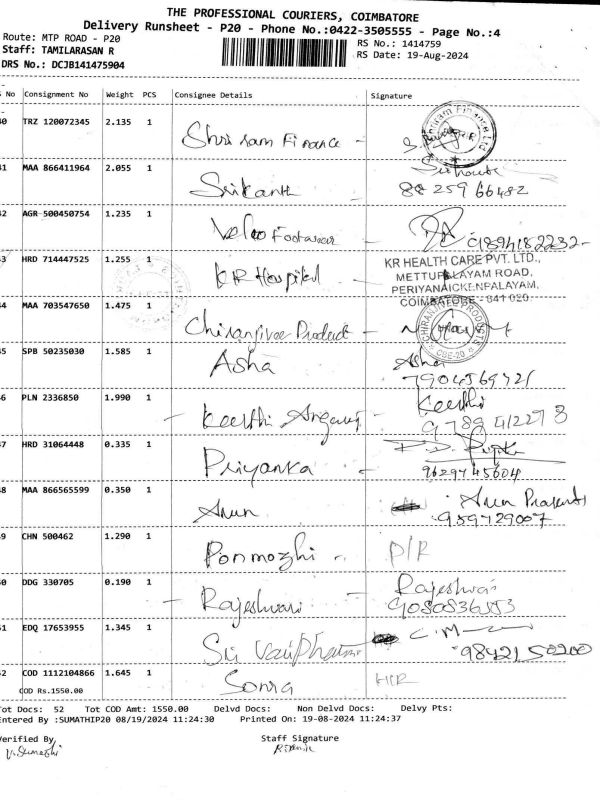 THE PROFESSIONAL COURIERS, COIMBATORE
Delivery Runsheet - P20 - Phone No.:0422-3505555 - Page No.:4
Route: MTP ROAD - P20
RS No.: 1414759
Staff: TAMILARASAN R
RS Date: 19-Aug-2024
DRS No.: DCJB141475904
No Consignment No Weight PCS Consignee Details Signature
40 TRZ 120072345 2.135 1 Shri ram Finance -
41 MAA 866411964 2.055 1 Srikanth 88 259 66482
42 AGR 500450754 1.235 1 Footwear 9894182232
43 HRD 714447525 1.255 1 KR Hospital
KR HEALTH CARE PVT. LTD.,
METTUPALAYAM ROAD,
PERIYANAICKENPALAYAM,
COIMBATORE - 641 020
44 MAA 703547650 1.475 1 Chiranjivee Product -
CHIRANJIVEE PRODUCTS
CBE-20
45 SPB 50235030 1.585 1 Asha Asha
7904569721
46 PLN 2336850 1.990 1 - Keerthi - Keerthi
9789412293
47 HRD 31064448 0.335 1 Priyanka
9629745604
48 MAA 866565599 0.350 1 Arun Arun Prakash
959729007
49 CHN 500462 1.290 1 Ponmozhi - P/R
50 DDG 330705 0.190 1 - Rajeshwari - Rajeshwari
9080836553
51 EDQ 17653955 1.345 1 Sri C.M
9842150200
52 COD 1112104866 1.645 1 Sonia
COD Rs.1550.00
Tot Docs: 52 Tot COD Amt: 1550.00 Delvd Docs: Non Delvd Docs: Delvy Pts:
Entered By :SUMATHIP20 08/19/2024 11:24:30 Printed On: 19-08-2024 11:24:37
Verified By Staff Signature
V. Sumathi